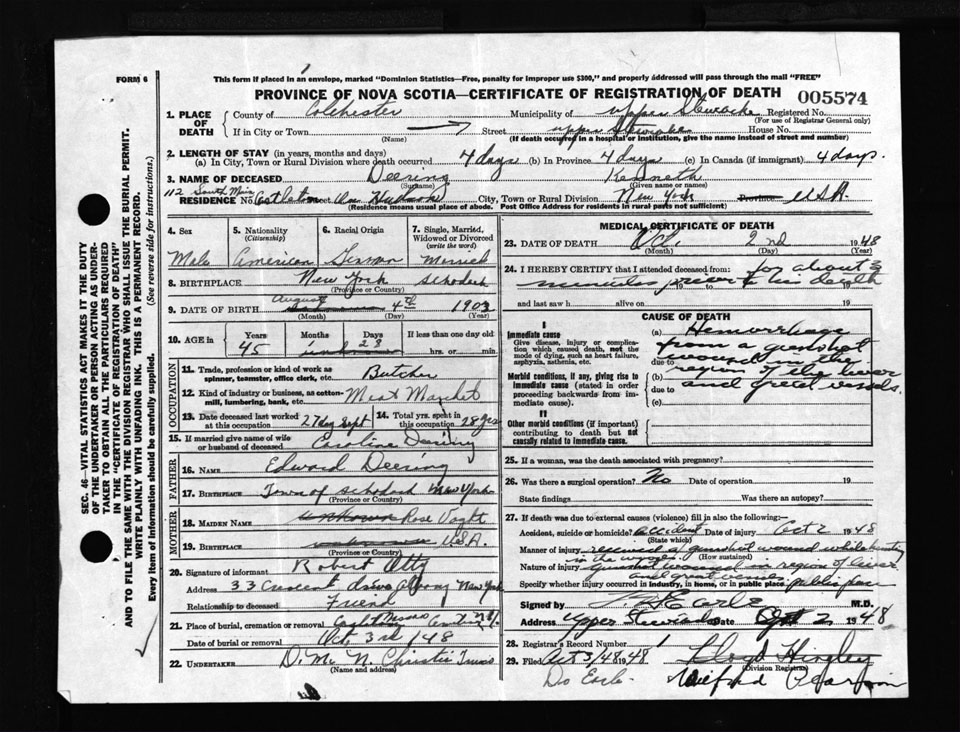 FORM 6
This form if placed in an envelope, marked "Dominion Statistics—Free, penalty for improper use $300," and properly addressed will pass through the mail "FREE"
PROVINCE OF NOVA SCOTIA—CERTIFICATE OF REGISTRATION OF DEATH 005574
1. PLACE OF DEATH County of Colchester Municipality of Upper Stewiacke Registered No.
(For use of Registrar General only)
If in City or Town Street Upper Stewiacke House No.
(Name) (If death occurred in a hospital or institution, give the name instead of street and number)
2. LENGTH OF STAY (in years, months and days)
(a) In City, Town or Rural Division where death occurred 4 days (b) In Province 4 days (c) In Canada (if immigrant) 4 days.
3. NAME OF DECEASED Deering Kenneth
(Surname) (Given name or names)
RESIDENCE No. 112 South Main Castleton on Hudson City, Town or Rural Division New York Province USA
(Residence means usual place of abode. Post Office Address for residents in rural parts not sufficient)
4. Sex 5. Nationality (Citizenship) 6. Racial Origin 7. Single, Married, Widowed or Divorced (write the word)
Male American German Married
8. BIRTHPLACE New York Schodack
(Province or Country)
9. DATE OF BIRTH August 4th 1903
(Month) (Day) (Year)
10. AGE in Years Months Days If less than one day old
45 unknown 28 hrs. or min.
OCCUPATION
11. Trade, profession or kind of work as spinner, teamster, office clerk, etc. Butcher
12. Kind of industry or business, as cotton-mill, lumbering, bank, etc. Meat Market
13. Date deceased last worked at this occupation 27 Day Sept 14. Total yrs. spent in this occupation 28 yrs
15. If married give name of wife or husband of deceased Caroline Deering
FATHER
16. NAME Edward Deering
17. BIRTHPLACE Town of Schodack New York
(Province or Country)
MOTHER
18. MAIDEN NAME unknown Rose Voght
19. BIRTHPLACE unknown U.S.A.
(Province or Country)
20. Signature of informant Robert Otty
Address 33 Crescent drive Albany New York
Relationship to deceased Friend
21. Place of burial, cremation or removal
Date of burial or removal Oct 3rd 1948
22. UNDERTAKER D. Mc N. Christie Truro
(Name and address)
MEDICAL CERTIFICATE OF DEATH
23. DATE OF DEATH Oct. 2nd 1948
(Month) (Day)
24. I HEREBY CERTIFY that I attended deceased from: for about 3
minutes prior to his death 19
and last saw h alive on 19
CAUSE OF DEATH
I
Immediate cause
Give disease, injury or complication which caused death, not the mode of dying, such as heart failure, asphyxia, asthenia, etc.
Morbid conditions, if any, giving rise to immediate cause (stated in order proceeding backwards from immediate cause).
II
Other morbid conditions (if important) contributing to death but not causally related to immediate cause.
(a) Hemorrhage
from a gunshot
due to wound in the
(b) region of the liver
due to and great vessels.
(c)
25. If a woman, was the death associated with pregnancy?
26. Was there a surgical operation? No Date of operation 19
State findings Was there an autopsy?
27. If death was due to external causes (violence) fill in also the following:—
Accident, suicide or homicide? accident Date of injury Oct 2 1948
(State which)
Manner of injury received a gunshot wound while hunting
in the woods. (How sustained)
Nature of injury gunshot wound in region of liver
and great vessels
Specify whether injury occurred in industry, in home, or in public place public place
Signed by Earle M.D.
Address Upper Stewiacke Date Oct 2 1948
28. Registrar's Record Number 1
29. Filed Oct 3/48 1948 Lloyd Hingley
(Division Registrar)
Do Earle Wilfred Pearson
SEC. 46—VITAL STATISTICS ACT MAKES IT THE DUTY
OF THE UNDERTAKER OR PERSON ACTING AS UNDERTAKER TO OBTAIN ALL THE PARTICULARS REQUIRED
IN THE "CERTIFICATE OF REGISTRATION OF DEATH"
AND TO FILE THE SAME WITH THE DIVISION REGISTRAR WHO SHALL ISSUE THE BURIAL PERMIT.
WRITE PLAINLY WITH UNFADING INK. THIS IS A PERMANENT RECORD.
Every item of information should be carefully supplied. (See reverse side for instructions.)